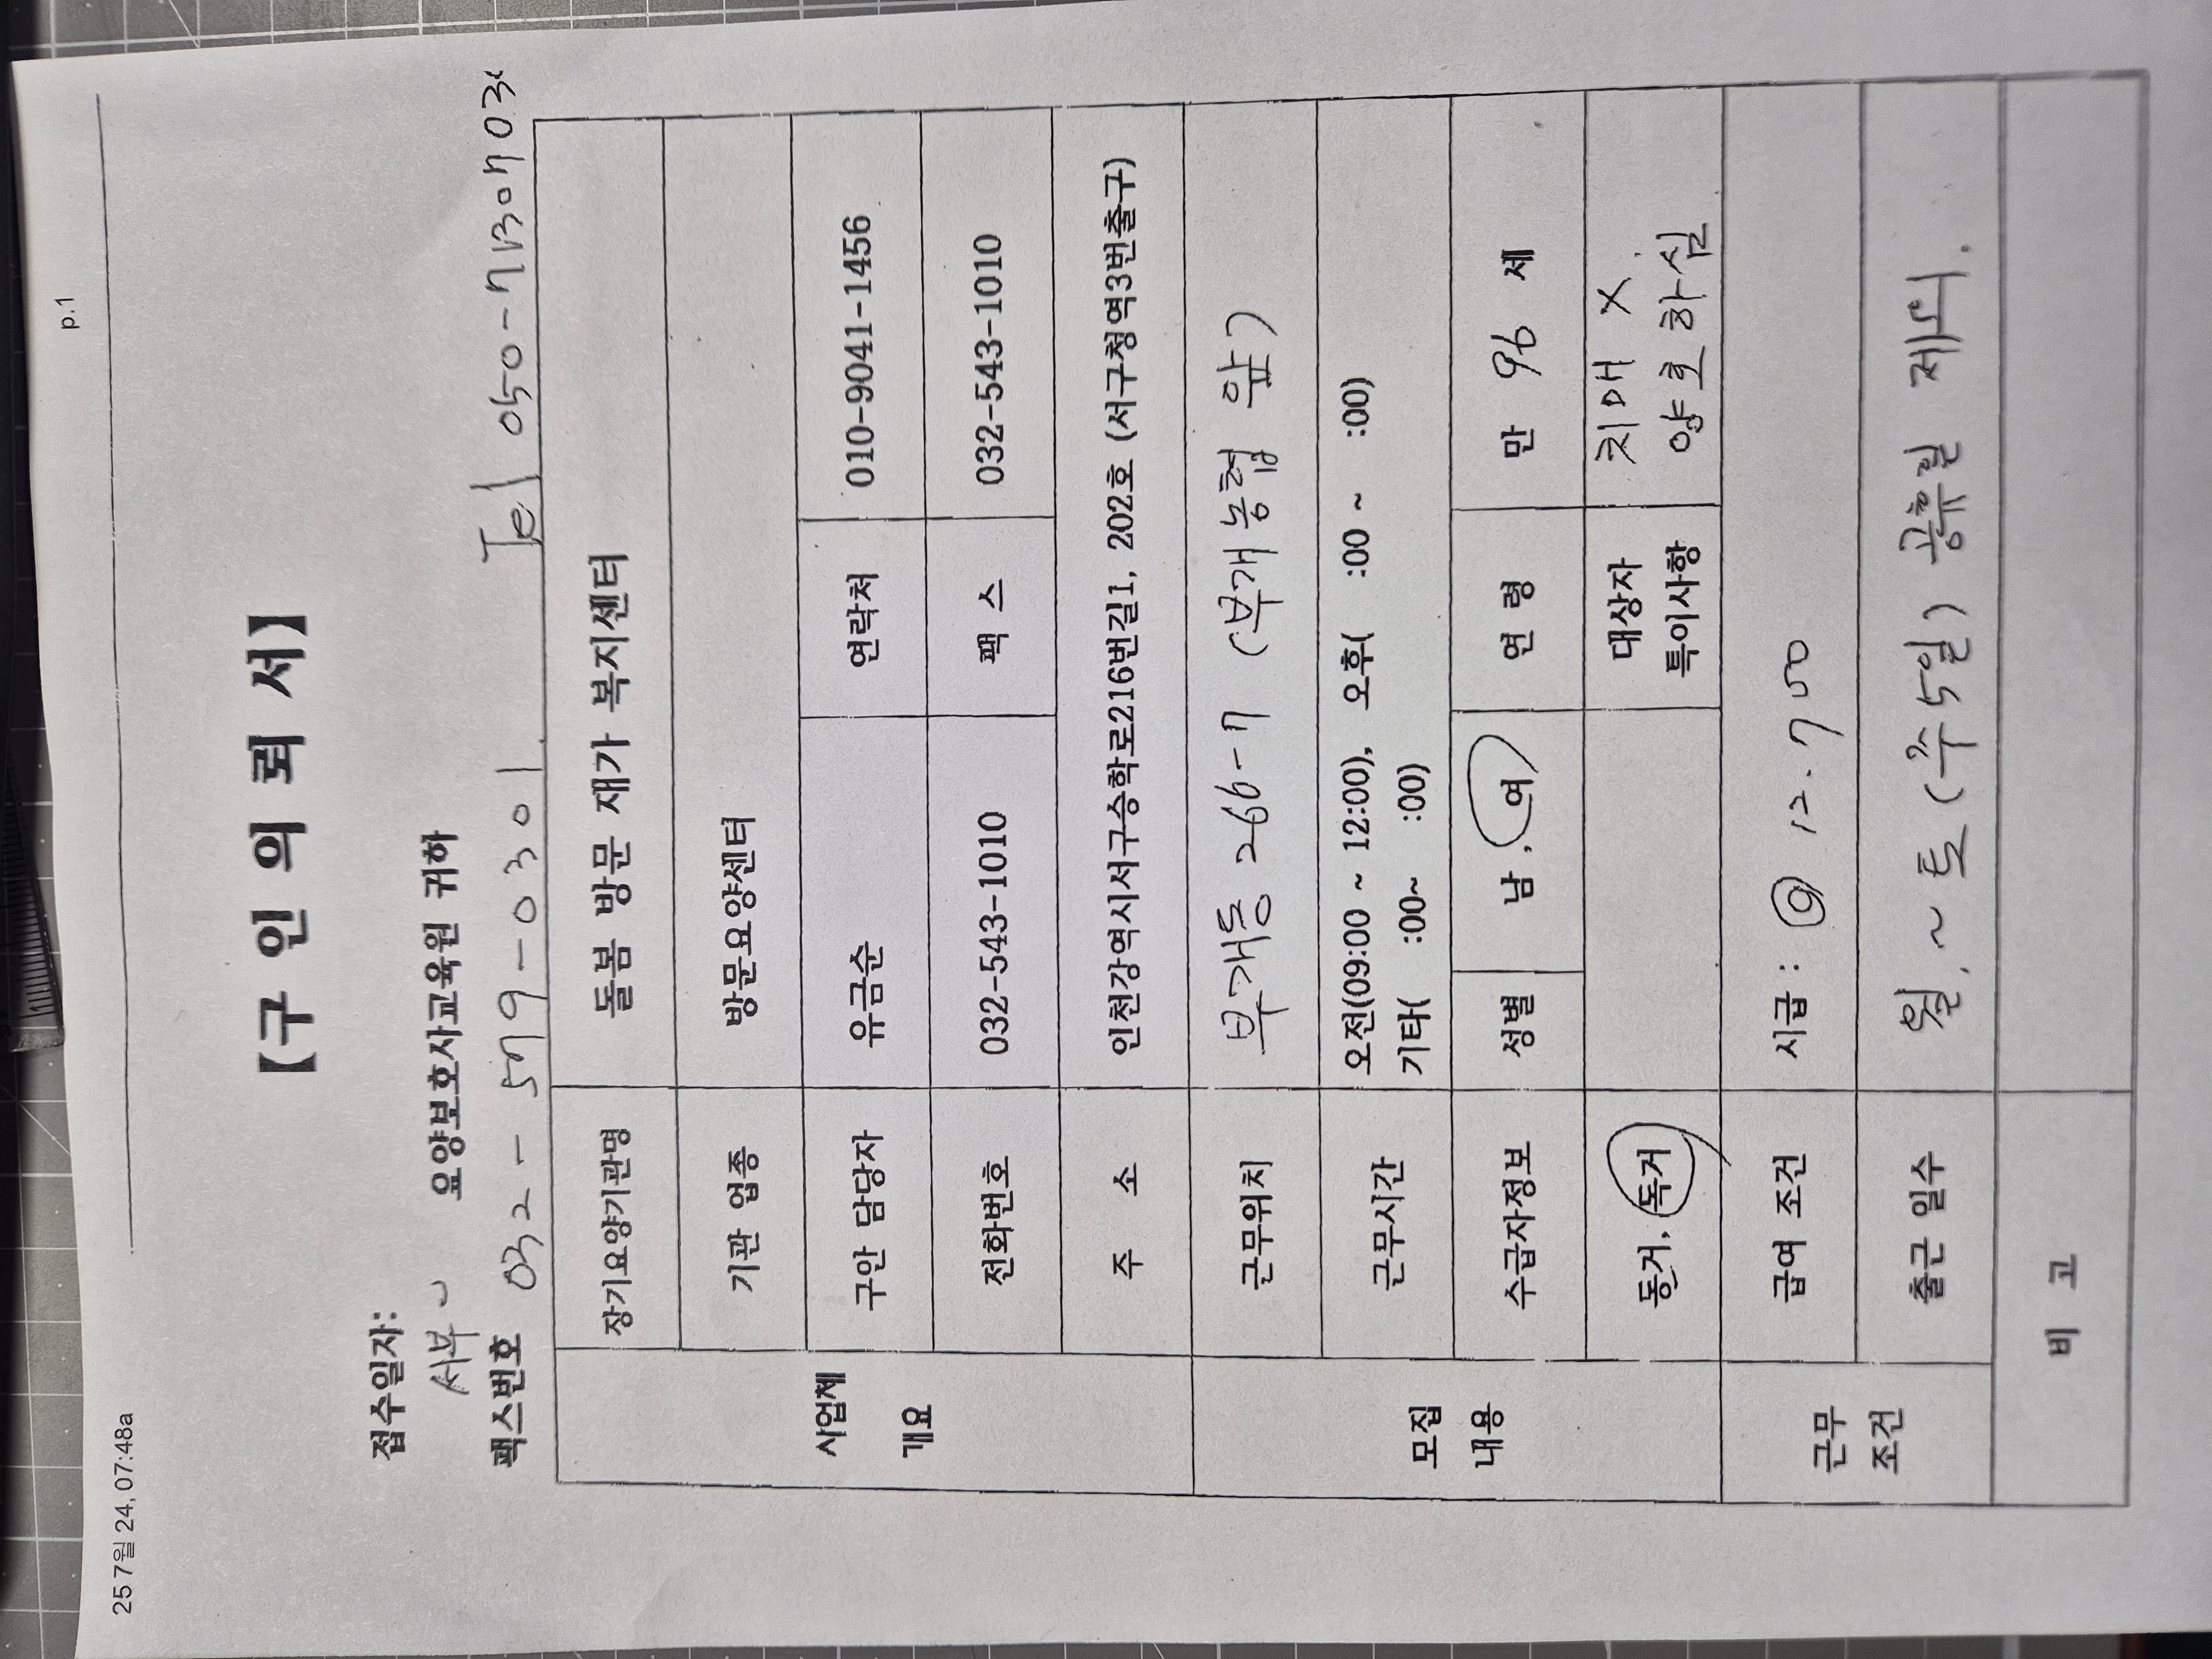 25 7월 24, 07:48a p.1
【구 인 의 뢰 서】
접수일자:
서부 요양보호사교육원 귀하
팩스번호 032-579-0301. Tel 050-7130703
사업체 개요
장기요양기관명 돌봄 방문 재가 복지센터
기관 업종 방문요양센터
구안 담당자 유금순 연락처 010-9041-1456
전화번호 032-543-1010 팩 스 032-543-1010
주 소 인천강역시서구승학로216번길1, 202호 (서구청역3번출구)
모집 내용
근무위치 부개동 266-7 (부개농협 앞)
근무시간 오전(09:00 ~ 12:00), 오후( :00 ~ :00)
기타( :00~ :00)
수급자정보 성별 남, 여 연 령 만 96 세
동거, 독거 대상자 특이사항 치매 X.
양호하심
근무 조건
급여 조건 시급 : @ 12.700
출근 일수 월.~토(주5일) 공휴일 제외.
비 고